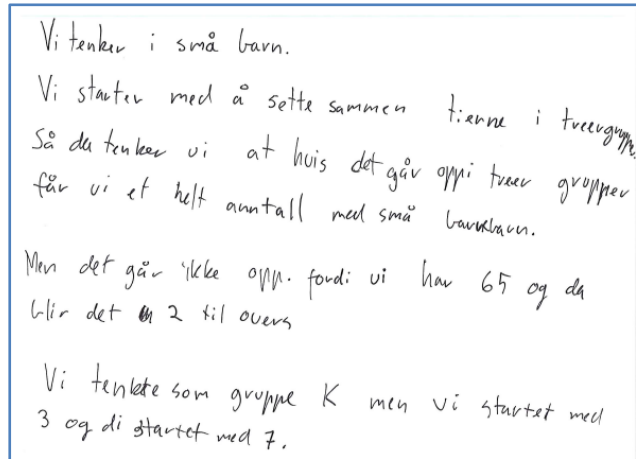 Vi tenker i små barn.
Vi starter med å sette sammen tierne i treergrupp.
Så da tenker vi at hvis det går oppi treer grupper
får vi et helt anntall med små barnebarn.
Men det går ikke opp. fordi vi har 65 og da
blir det 2 til overs
Vi tenkte som gruppe K men vi startet med
3 og di startet med 7.